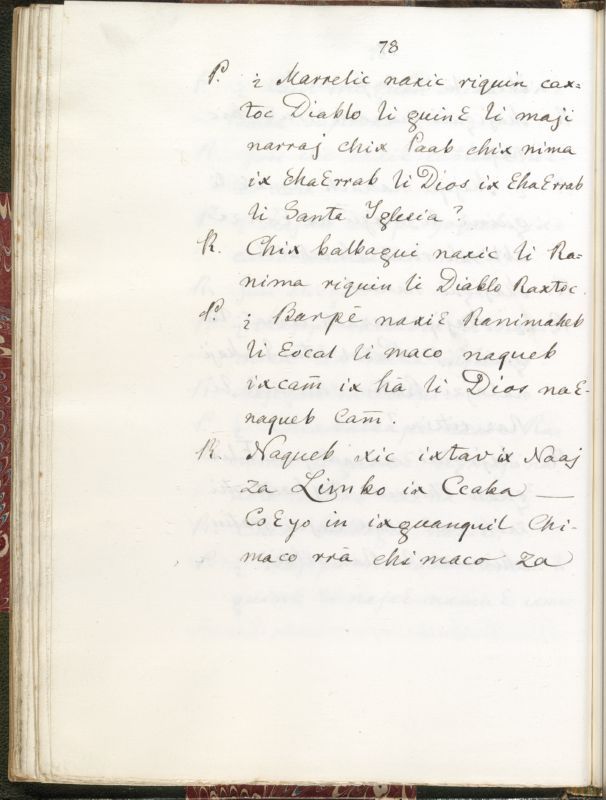 78
P. ¿ Marrelic naxic riquin cax=
toc Diablo li guinɛ li maji
narraj chix Paab chix nima
ix ɛhaɛrrab li Dios ix ɛhaɛrrab
li Santa Yglesia?
R. Chix balbagui naxic li Ra=
nima riquin li Diablo Raxtoc.
P. ¿ Barpē naxiɛ Ranimaheb
li ɛocal li maco naqueb
ixcam̄ ix hā li Dios naɛ-
naqueb cam̄.
R. Naqueb xic ixtav ix Naaj
za Limbo ix Ccaba —
Coɛyo in ixguanquil Chi-
maco rrā chi maco za